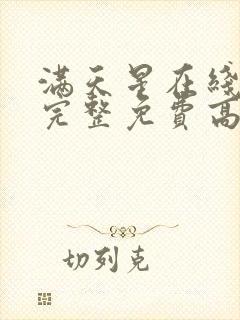 满天星在线
完整免费高
切列克